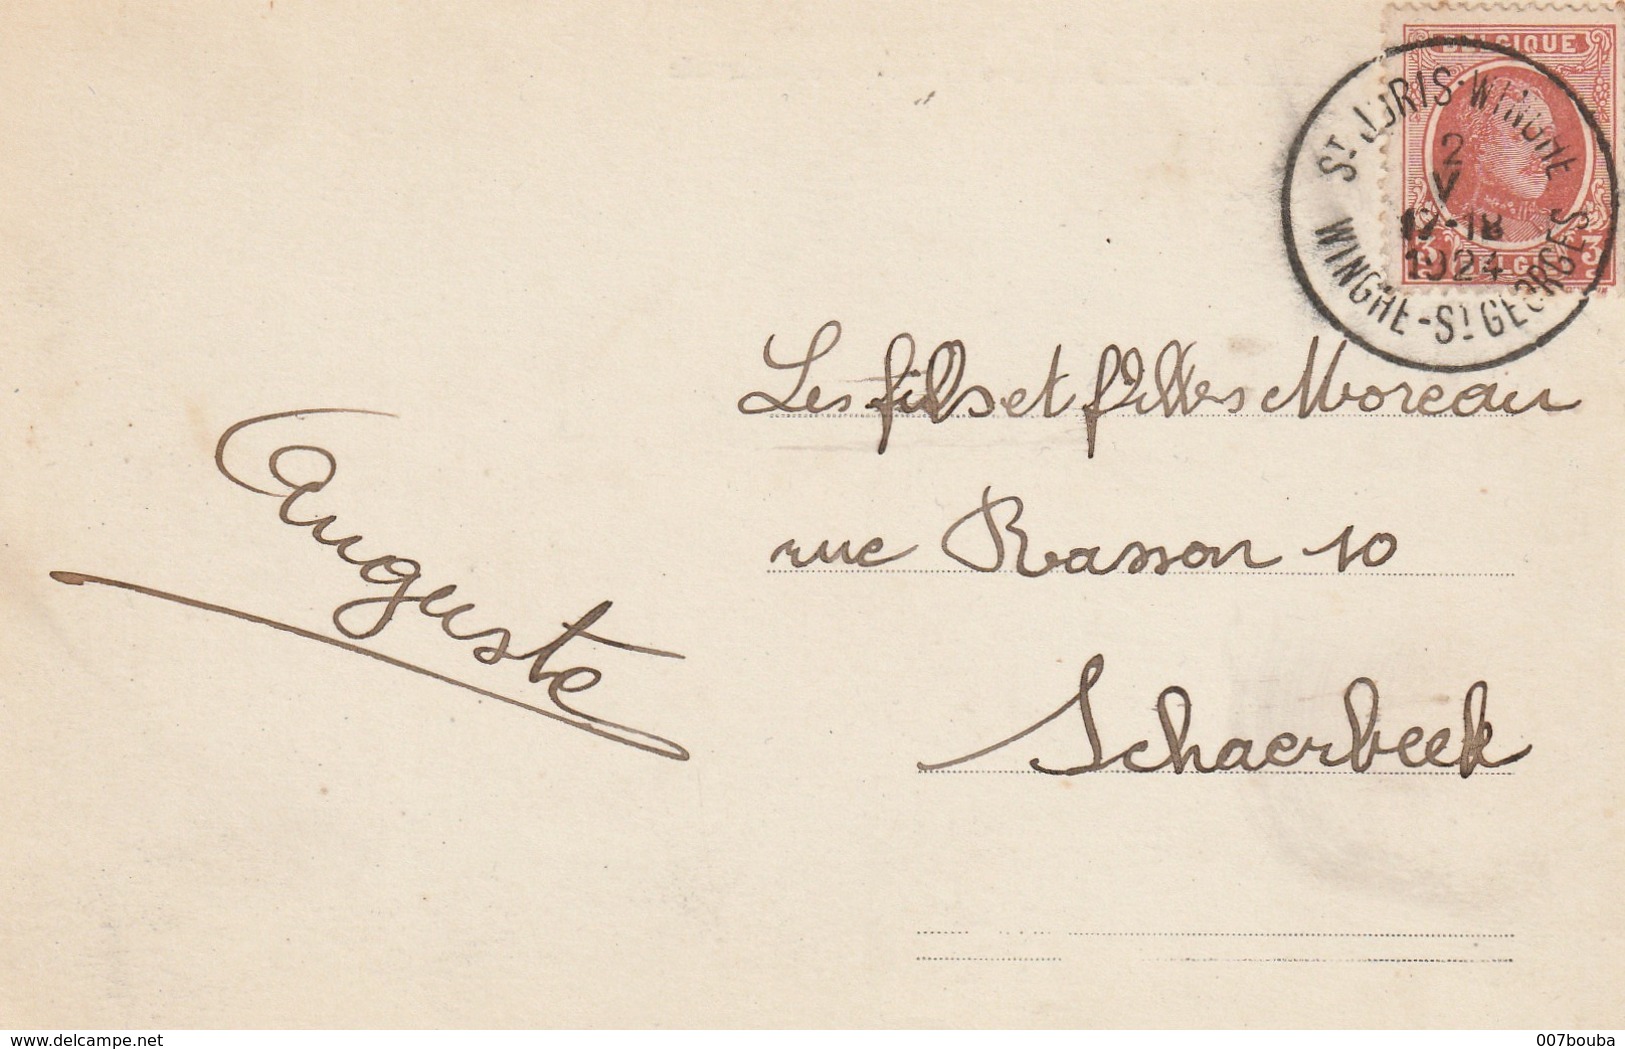 BELGIQUE
ST JORIS-WINGHE
2
V
17-18
1924
WINGHE-ST GEORGES
3 BELGIË 3
Les fils et filles Moreau
rue Rasson 10
Schaerbeek
Auguste
delcampe.net
007bouba